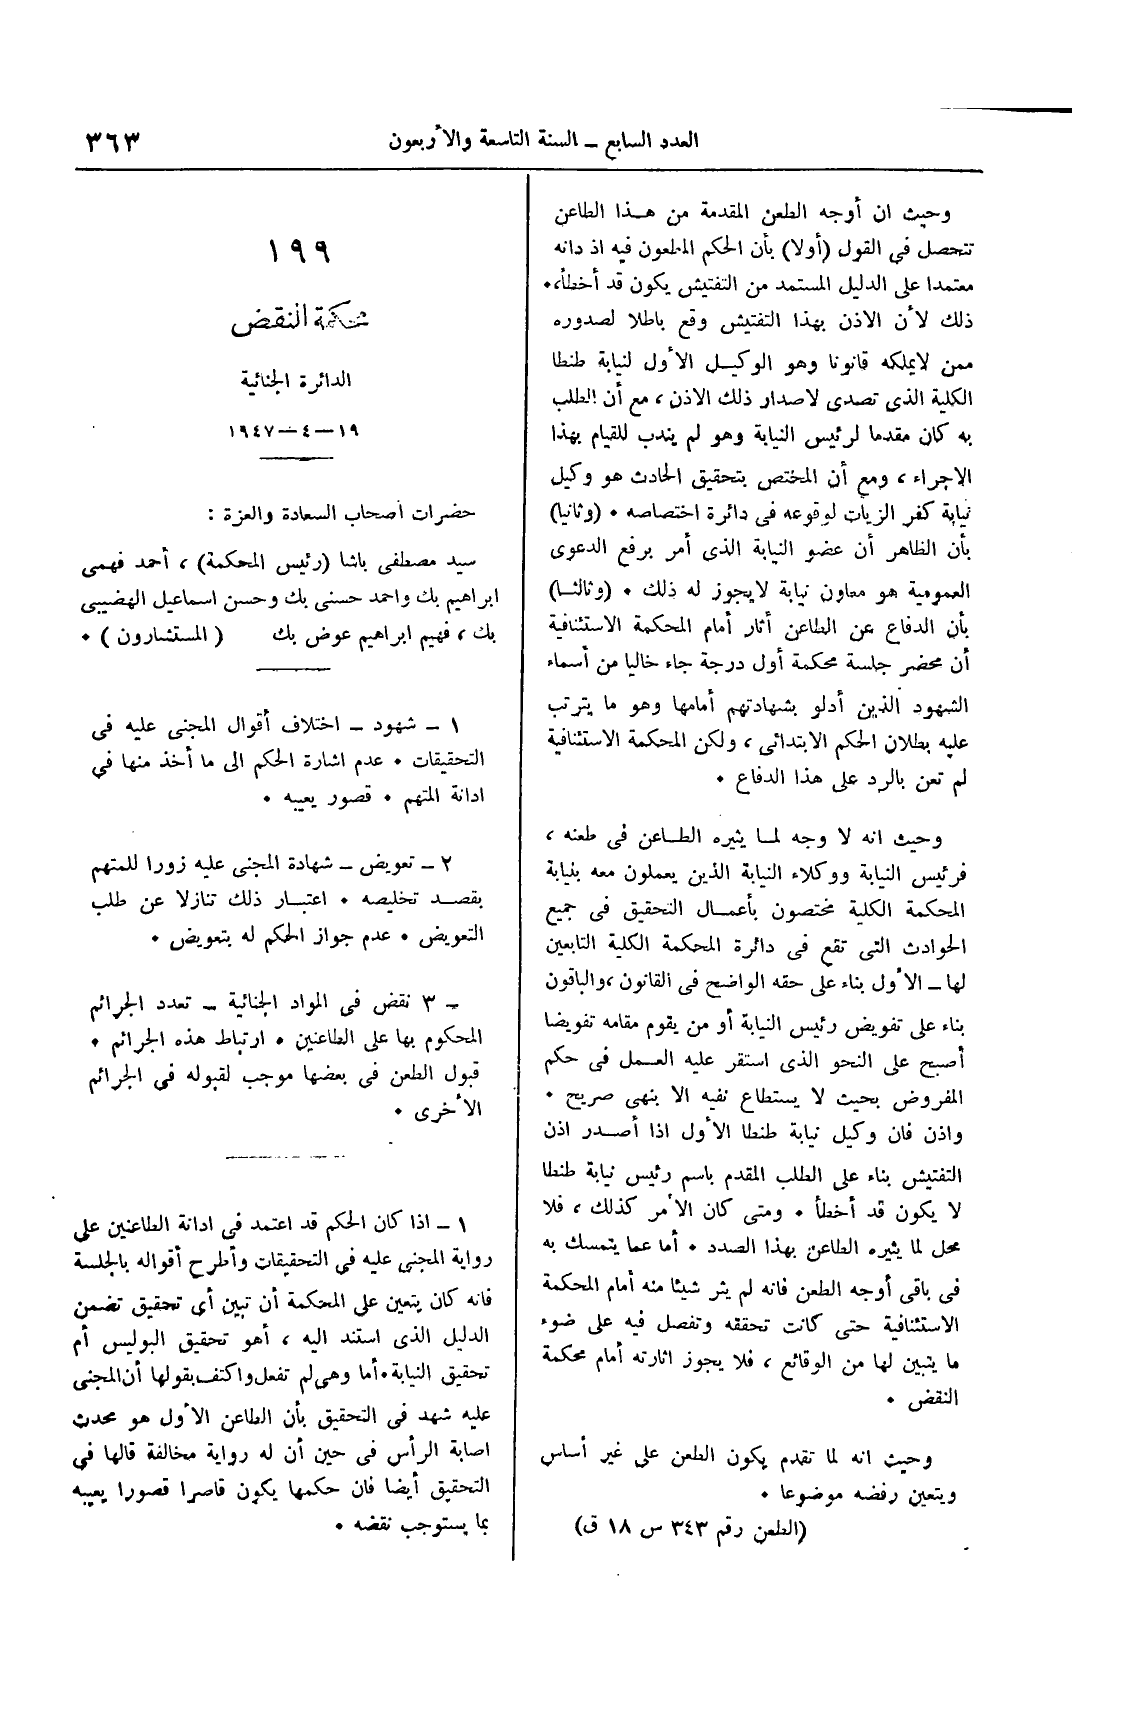 العدد السابع – السنة التاسعة والأربعون
٣٦٣
وحيث ان أوجه الطعن المقدمة من هـذا الطاعن
تتحصل في القول (أولا) بأن الحكم المطعون فيه اذ دانه
معتمدا على الدليل المستمد من التفتيش يكون قد أخطأ،
ذلك لأن الاذن بهذا التفتيش وقع باطلا لصدوره
ممن لايملكه قانونا وهو الوكيـل الأول لنيابة طنطا
الكلية الذى تصدى لاصدار ذلك الاذن ، مع أن الطلب
به كان مقدما لرئيس النيابة وهو لم يندب للقيام بهذا
الاجراء ، ومع أن المختص بتحقيق الحادث هو وكيل
نيابة كفر الزيات لوقوعه فى دائرة اختصاصه • (وثانيا)
بأن الظاهر أن عضو النيابة الذى أمر برفع الدعوى
العمومية هو معاون نيابة لايجوز له ذلك • (وثالثـا)
بأن الدفاع عن الطاعن أثار أمام المحكمة الاستئنافية
أن محضر جلسة محكمة أول درجة جاء خاليا من أسماء
الشهود الذين أدلو بشهادتهم أمامها وهو ما يترتب
عليه بطلان الحكم الابتدائى ، ولكن المحكمة الاستئنافية
لم تعن بالرد على هذا الدفاع •
وحيث انه لا وجه لمـا يثيره الطـاعن فى طعنه ،
فرئيس النيابة ووكلاء النيابة الذين يعملون معه بنيابة
المحكمة الكلية مختصون بأعمـال التحقيق فى جميع
الحوادث التى تقع فى دائرة المحكمة الكلية التابعين
لها – الأول بناء على حقه الواضح فى القانون ، والباقون
بناء على تفويض رئيس النيابة أو من يقوم مقامه تفويضا
أصبح على النحو الذى استقر عليه العـمل فى حكم
المفروض بحيث لا يستطاع نفيه الا بنهى صريح •
واذن فان وكيل نيابة طنطا الأول اذا أصـدر اذن
التفتيش بناء على الطلب المقدم باسم رئيس نيابة طنطا
لا يكون قد أخطأ • ومتى كان الأمر كذلك ، فلا
محل لما يثيره الطاعن بهذا الصدد • أما عما يتمسك به
فى باقى أوجه الطعن فانه لم يثر شيئا منه أمام المحكمة
الاستئنافية حتى كانت تحققه وتفصل فيه على ضوء
ما يتبين لها من الوقائع ، فلا يجوز اثارته أمام محكمة
النقض •
وحيث انه لما تقدم يكون الطعن على غير أساس
ويتعين رفضه موضوعا •
(الطعن رقم ٣٤٣ س ١٨ ق)
١٩٩
محكمة النقض
الدائرة الجنائية
١٩–٤–١٩٤٧
حضرات أصحاب السعادة والعزة :
سيد مصطفى باشا (رئيس المحكمة) ، أحمد فهمى
ابراهيم بك واحمد حسنى بك وحسن اسماعيل الهضيبى
بك ، فهيم ابراهيم عوض بك ( المستشارون ) •
١ – شهود – اختلاف أقوال المجنى عليه فى
التحقيقات • عدم اشارة الحكم الى ما أخذ منها في
ادانة المتهم • قصور يعيبه •
٢ – تعويض – شهادة المجنى عليه زورا للمتهم
بقصـد تخليصه • اعتبـار ذلك تنازلا عن طلب
التعويض • عدم جواز الحكم له بتعويض •
– ٣ نقض فى المواد الجنائية – تعدد الجرائم
المحكوم بها على الطاعنين • ارتباط هذه الجرائم •
قبول الطعن فى بعضها موجب لقبوله في الجرائم
الأخرى •
١ – اذا كان الحكم قد اعتمد فى ادانة الطاعنين على
رواية المجنى عليه فى التحقيقات وأطرح أقواله بالجلسة
فانه كان يتعين على المحكمة أن تبين أى تحقيق تضمن
الدليل الذى استند اليه ، أهو تحقيق البوليس أم
تحقيق النيابة • أما وهى لم تفعل واكتف بقولها أن المجنى
عليه شهد فى التحقيق بأن الطاعن الأول هو محدث
اصابة الرأس فى حين أن له رواية مخالفة قالها في
التحقيق أيضا فان حكمها يكون قاصرا قصورا يعيبه
بما يستوجب نقضه •